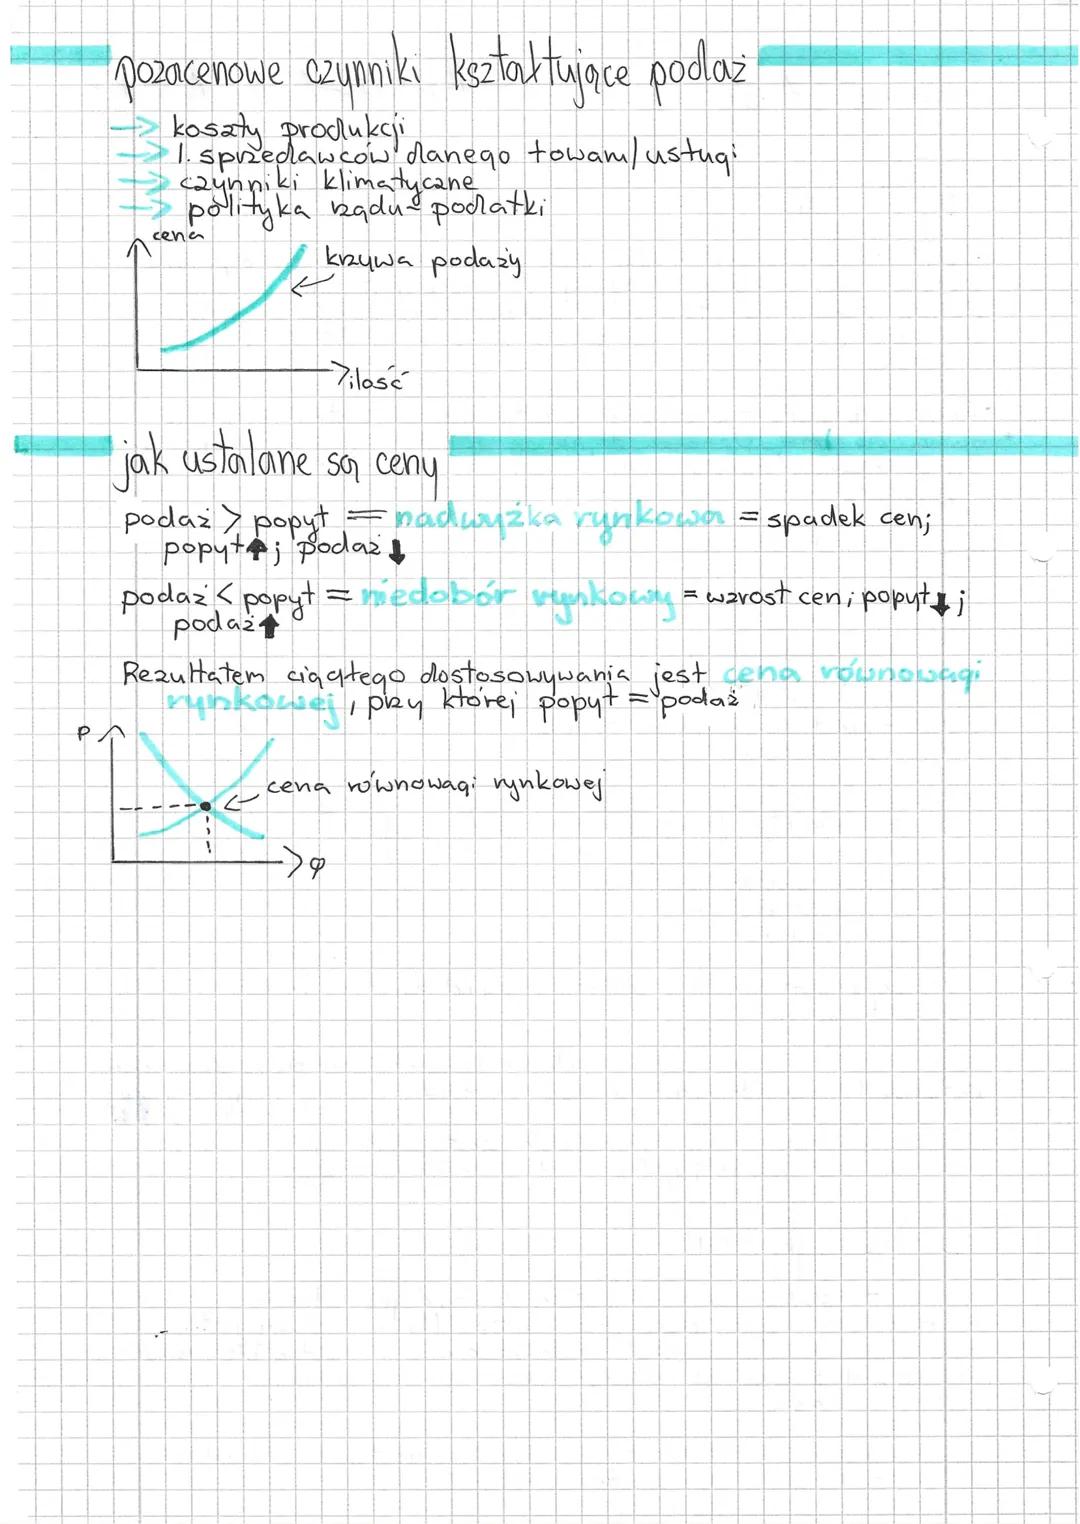 pozacenowe czynniki kształtujące podaż
→ koszty produkcji
→ l. sprzedawców danego towaru/usługi
→ czynniki klimatyczne
→ polityka rządu - podatki
cena
krzywa podaży
ilość
jak ustalane są ceny
podaż > popyt = nadwyżka rynkowa = spadek cen;
popyt↑; podaż↓
podaż < popyt = niedobór rynkowy = wzrost cen; popyt↓;
podaż↑
Rezultatem ciągłego dostosowywania jest cena równowagi
rynkowej, przy której popyt = podaż
P
cena równowagi rynkowej
φ